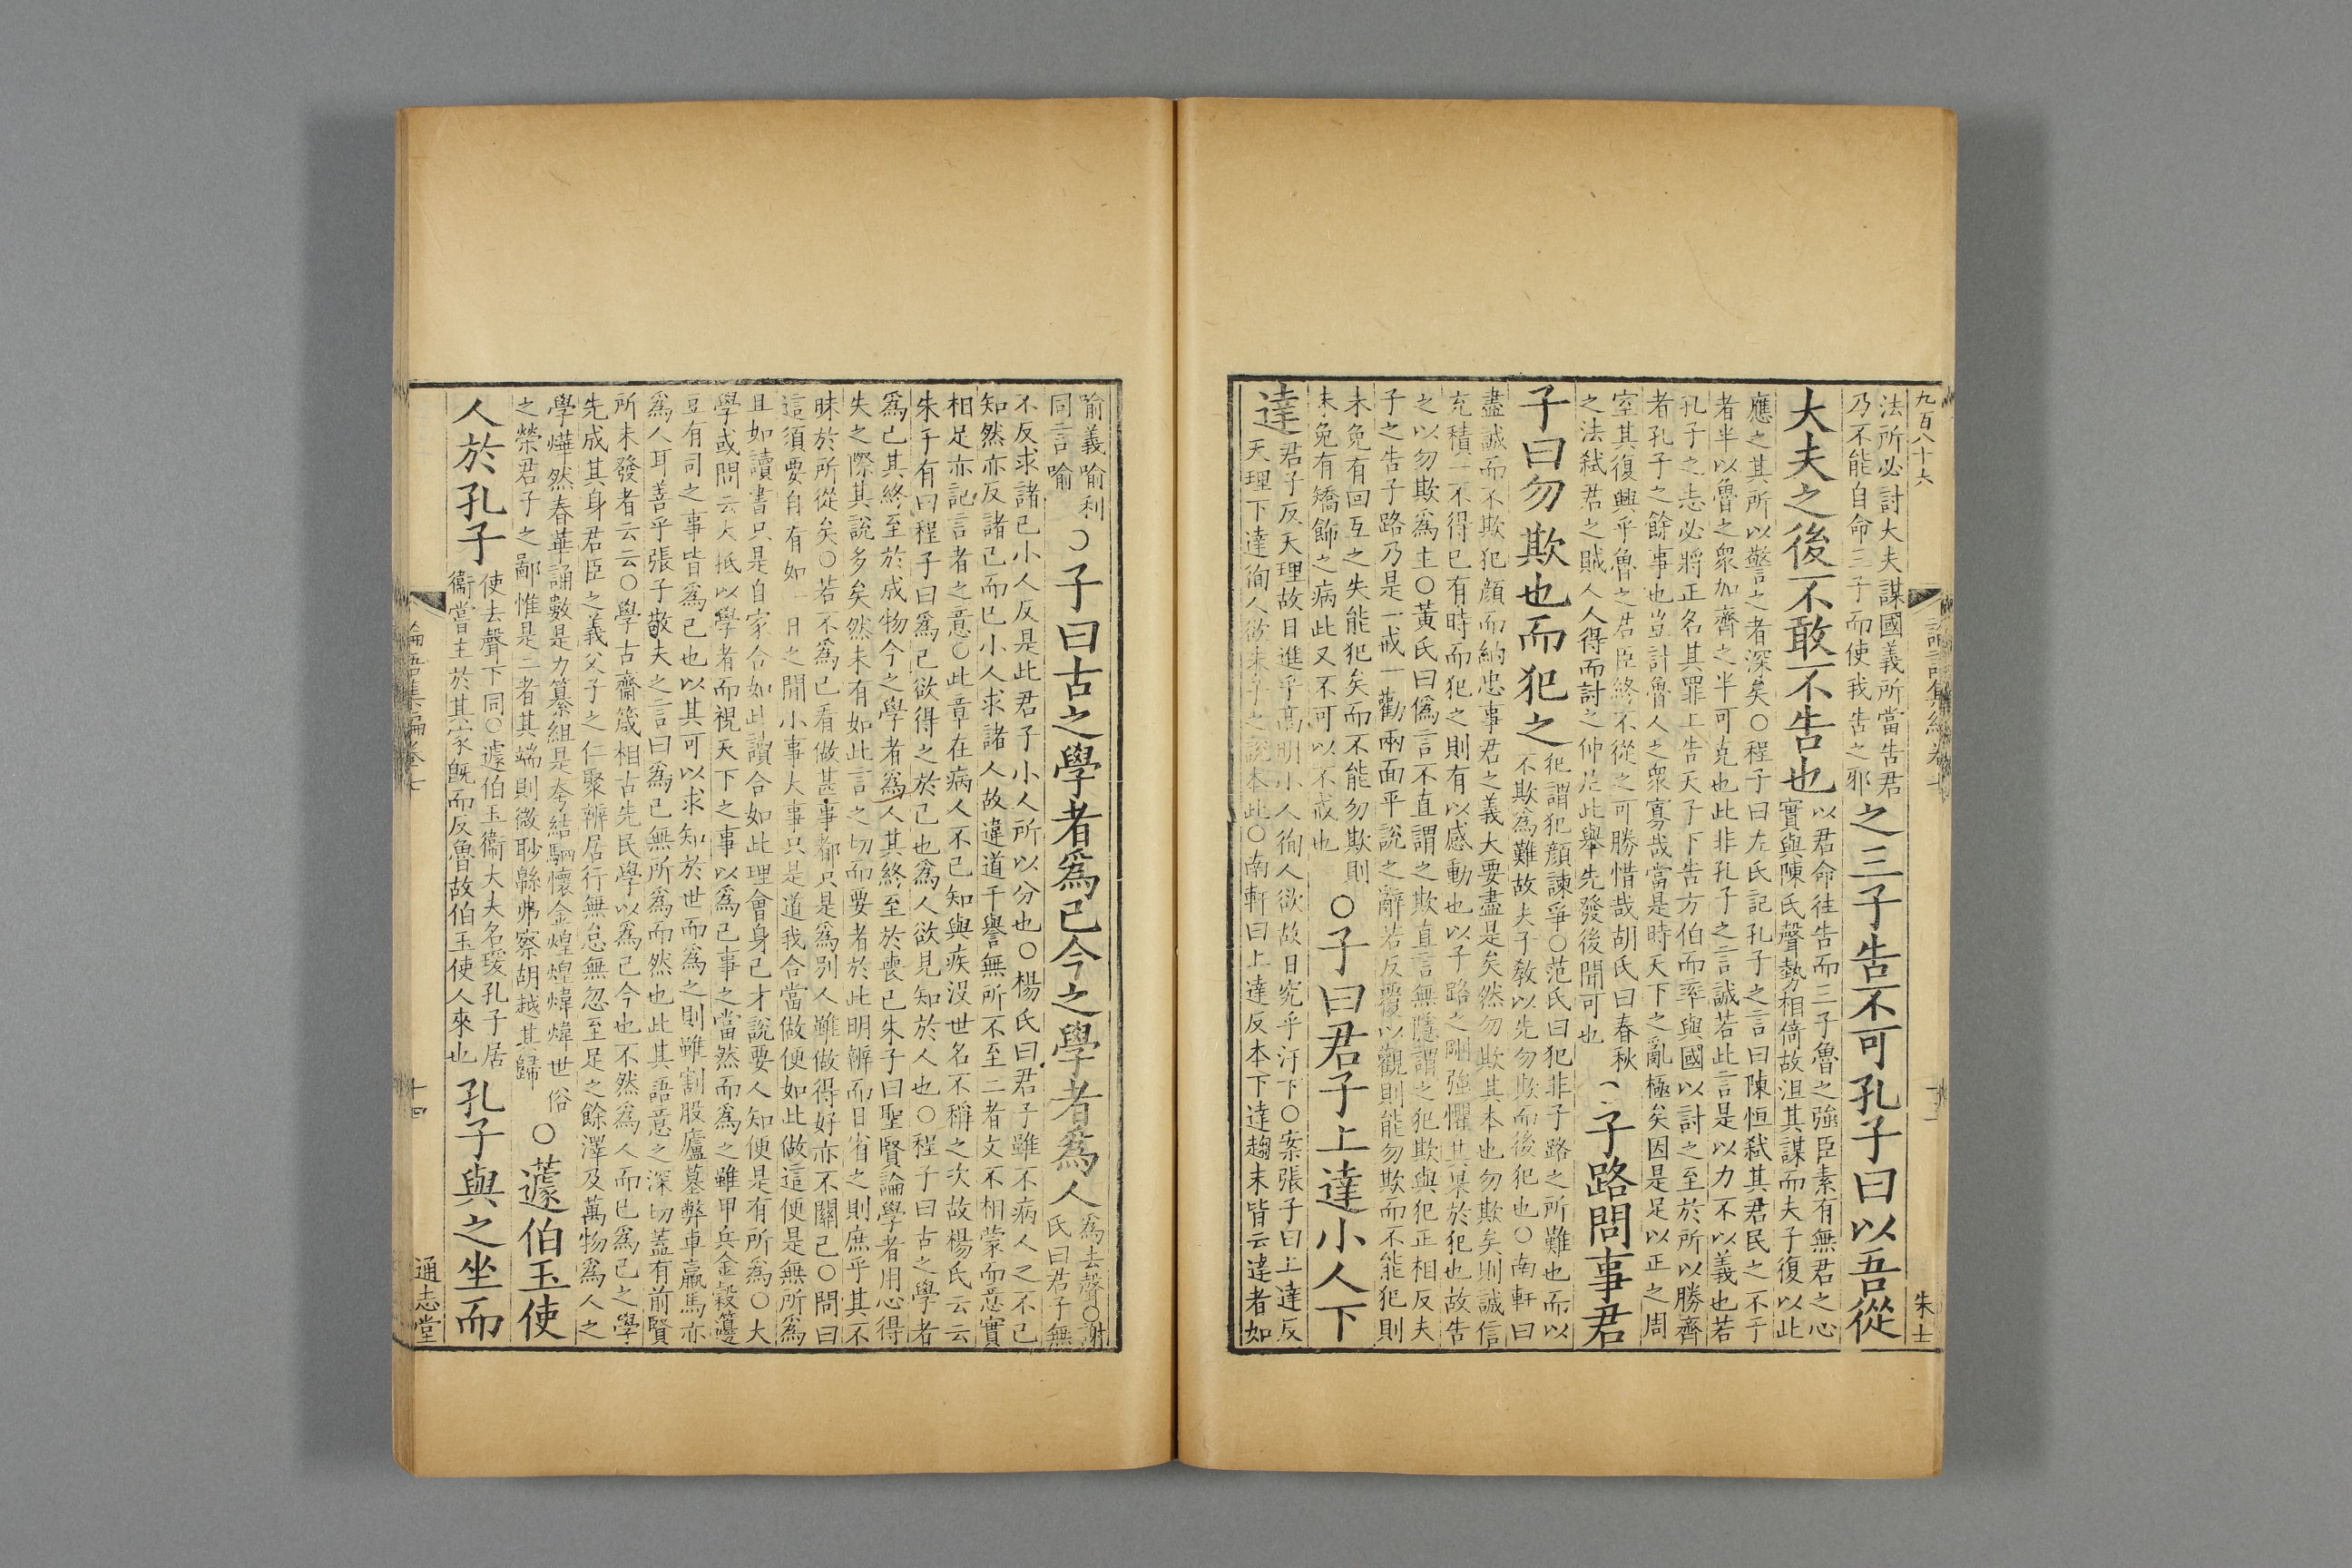 九百八十六
朱士
法所必討大夫謀國義所當告君
乃不能自命三子而使我告之邪
之三子告不可孔子曰以吾從
大夫之後不敢不告也
以君命往告而三子魯之強臣素有無君之心
實與陳氏聲勢相倚故沮其謀而夫子復以此
應之其所以警之者深矣○程子曰左氏記孔子之言曰陳恒弒其君民之不予
者半以魯之衆加齊之半可克也此非孔子之言誠若此言是以力不以義也若
孔子之志必將正名其罪上告天子下告方伯而率與國以討之至於所以勝齊
者孔子之餘事也豈計魯人之衆寡哉當是時天下之亂極矣因是足以正之周
室其復興乎魯之君臣終不從之可勝惜哉胡氏曰春秋
之法弒君之賊人人得而討之仲尼此舉先發後聞可也
子路問事君
子曰勿欺也而犯之
犯謂犯顔諫爭○范氏曰犯非子路之所難也而以
不欺爲難故夫子教以先勿欺而後犯也○南軒曰
盡誠而不欺犯顔而納忠事君之義大要盡是矣然勿欺其本也勿欺矣則誠信
充積一不得已有時而犯之則有以感動也以子路之剛強懼其果於犯也故告
之以勿欺爲主○黃氏曰僞言不直謂之欺直言無隱謂之犯欺與犯正相反夫
子之告子路乃是一戒一勸兩面平說之辭若反覆以觀則能勿欺而不能犯則
未免有回互之失能犯矣而不能勿欺則
未免有矯飾之病此又不可以不戒也
○子曰君子上達小人下
達
君子反天理故日進乎高明小人徇人欲故日究乎汙下○案張子曰上達反
天理下達徇人欲朱子之說本此○南軒曰上達反本下達趨末皆云達者如
喻義喻利
同言喻
○子曰古之學者爲己今之學者爲人
爲去聲○謝
氏曰君子無
不反求諸己小人反是此君子小人所以分也○楊氏曰君子雖不病人之不己
知然亦反諸己而已小人求諸人故違道干譽無所不至二者文不相蒙而意實
相足亦記言者之意○此章在病人不己知與疾沒世名不稱之次故楊氏云云
朱子有曰程子曰爲己欲得之於己也爲人欲見知於人也○程子曰古之學者
爲己其終至於成物今之學者爲人其終至於喪己朱子曰聖賢論學者用心得
失之際其說多矣然未有如此言之切而要者於此明辨而日省之則庶乎其不
昧於所從矣○若不爲己看做甚事都只是爲別人雖做得好亦不關己○問曰
這須要自有如一日之閒小事大事只是道我合當做便如此做這便是無所爲
且如讀書只是自家合如此讀合如此理會身己才說要人知便是有所爲○大
學或問云大抵以學者而視天下之事以爲己事之當然而爲之雖甲兵金穀籩
豆有司之事皆爲己也以其可以求知於世而爲之則雖割股廬墓弊車羸馬亦
爲人耳善乎張子敬夫之言曰爲己無所爲而然也此其語意之深切蓋有前賢
所未發者云云○學古齋箴相古先民學以爲己今也不然爲人而已爲己之學
先成其身君臣之義父子之仁聚辨居行無怠無忽至足之餘澤及萬物爲人之
學燁然春華誦數是力纂組是夸結駟懷金煌煌煒煒世俗
之榮君子之鄙惟是二者其端則微眇緜弗察胡越其歸
○蘧伯玉使
人於孔子
使去聲下同○蘧伯玉衞大夫名瑗孔子居
衞嘗主於其家旣而反魯故伯玉使人來也
孔子與之坐而
論語集編卷七
十四
通志堂